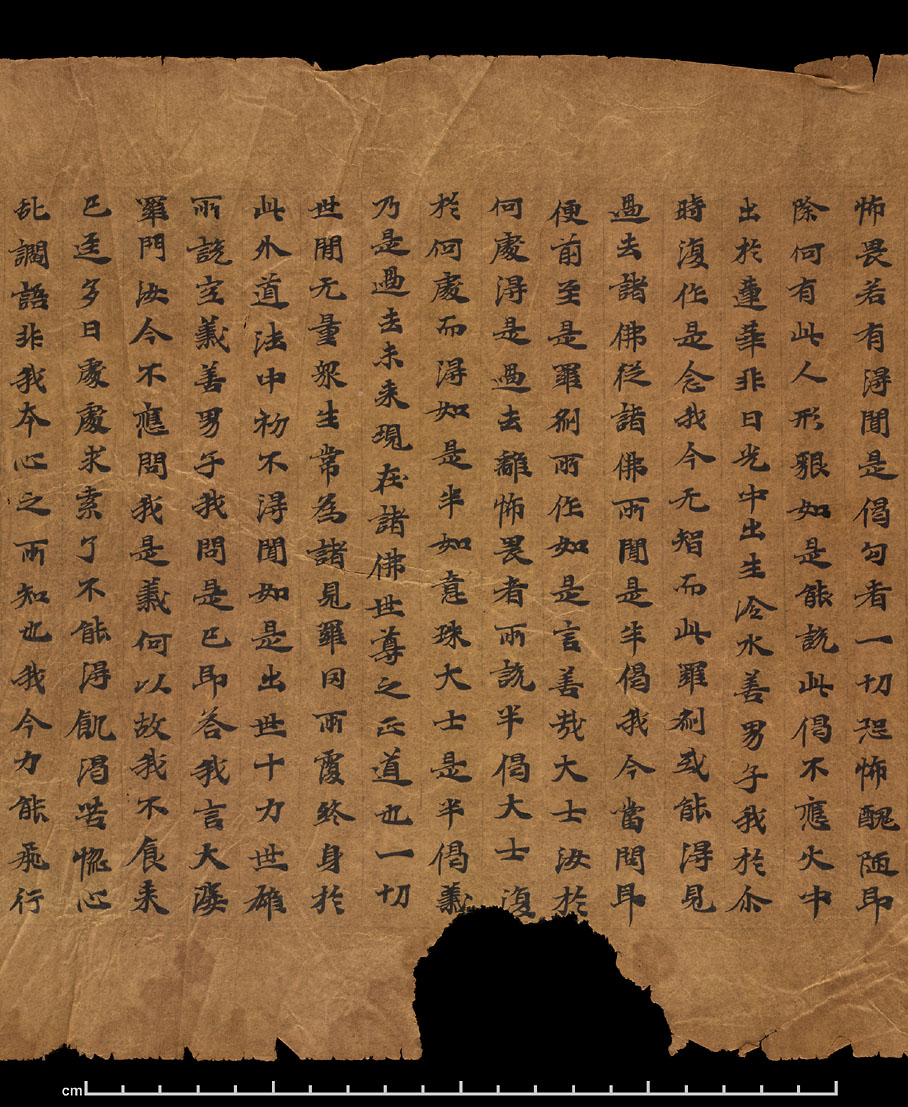 怖畏若有得聞是偈句者一切恐怖醜陋即
除何有此人形貌如是能説此偈不應火中
出於蓮華非日光中出生冷水善男子我於尒
時復作是念我今无智而此羅刹或能得見
過去諸佛從諸佛所聞是半偈我今當問即
便前至是羅刹所作如是言善哉大士汝於
何處得是過去離怖畏者所説半偈大士復
於何處而得如是半如意珠大士是半偈義
乃是過去未来現在諸佛世尊之正道也一切
世間无量衆生常為諸見羅囙所覆終身於
此外道法中初不得聞如是出世十力世雄
所説空義善男子我問是已即答我言大婆
羅門汝今不應問我是義何以故我不食来
已逕多日處處求索了不能得飢渴苦惱心
乱讇語非我本心之所知也我今力能飛行